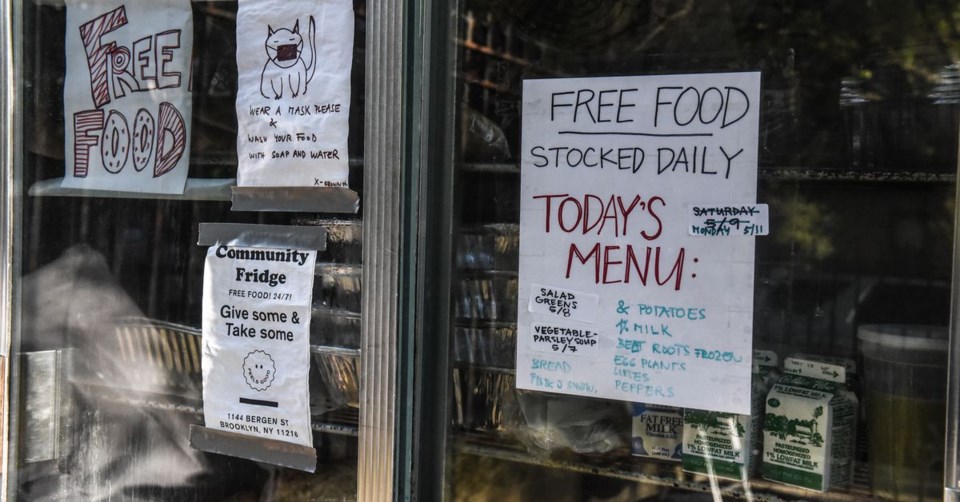 FREE
FOOD
WEAR A MASK PLEASE
&
WASH YOUR FOOD
WITH SOAP AND WATER
Community
Fridge
FREE FOOD! 24/7!
Give some &
Take some
1144 BERGEN ST
BROOKLYN, NY 11216
FREE FOOD
STOCKED DAILY
TODAY'S
MENU:
SATURDAY
5/9
MONDAY 5/11
SALAD
GREENS
5/8
VEGETABLE-
PARSLEY SOUP
5/7
BREAD
& POTATOES
1% MILK
BEET ROOTS FROZEN
EGG PLANTS
LIMES
PEPPERS
FAT FREE
MILK
PASTEURIZED
HOMOGENIZED
1% LOWFAT MILK
1% LOWFAT MILK
PASTEURIZED
HOMOGENIZED
1% LOWFAT MILK